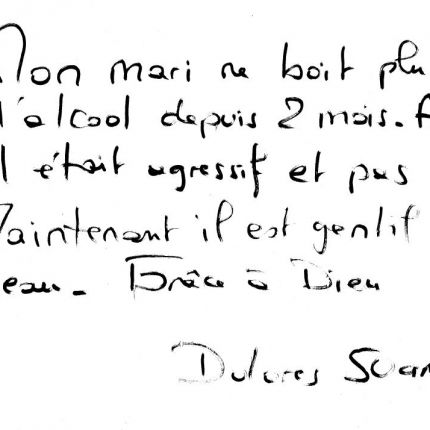 Mon mari ne boit plu
d'alcool depuis 2 mois.
il était agressif et pas
Maintenant il est gentil
beau. Grâce à Dieu
Dolores Suar